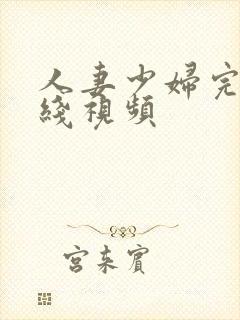 人妻少婦完
綫視頻
宮本賓